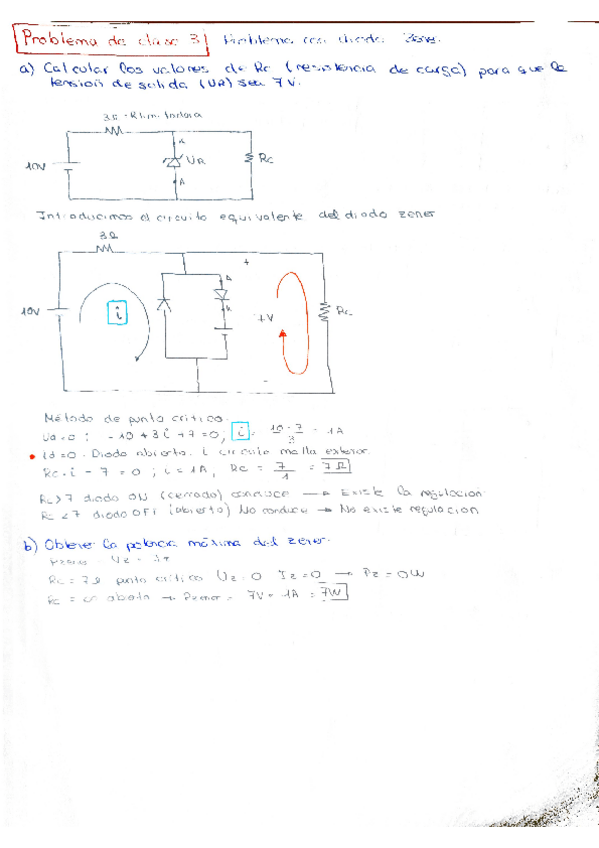 Problema de clase 3 Problema con diodo zener.
a) Calcular los valores de Rc (resistencia de carga) para que la
tensión de salida (UR) sea 7V.
3Ω · R limitadora
K
UR
Rc
10V
A
Introducimos el circuito equivalente del diodo zener
3Ω
+
A
K
10V
i
+V
Rc
-
Método de punto crítico.
Ud=0 : -10+3i+7=0, i = 10-7/3 = 1A
• Id=0 · Diodo abierto. i circula malla exterior.
Rc·i - 7 = 0 ; i = 1A, Rc = 7/1 = 7Ω
Rc>7 diodo ON (cerrado) conduce → Existe la regulación
Rc<7 diodo OFF (abierto) No conduce → No existe regulación
b) Obtener la potencia máxima del zener.
Rc = 7Ω punto crítico Uz=0 Iz=0 → Pz = 0W
Rc = ∞ abierta → Pzener = 7V · 1A = 7W